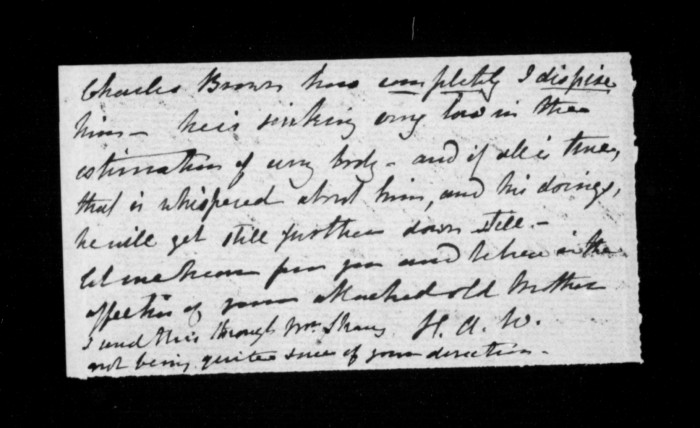 Charles Brown how completely I dispise
him - he is sinking very low in the
estimation of every body - and if all is true,
that is whispered about him, and his doings,
he will get still further down still. -
let me hear from you and believe in the
affection of your attached old brother
I send this through Mr. Shaws H. A. W.
not being quite sure of your direction. -